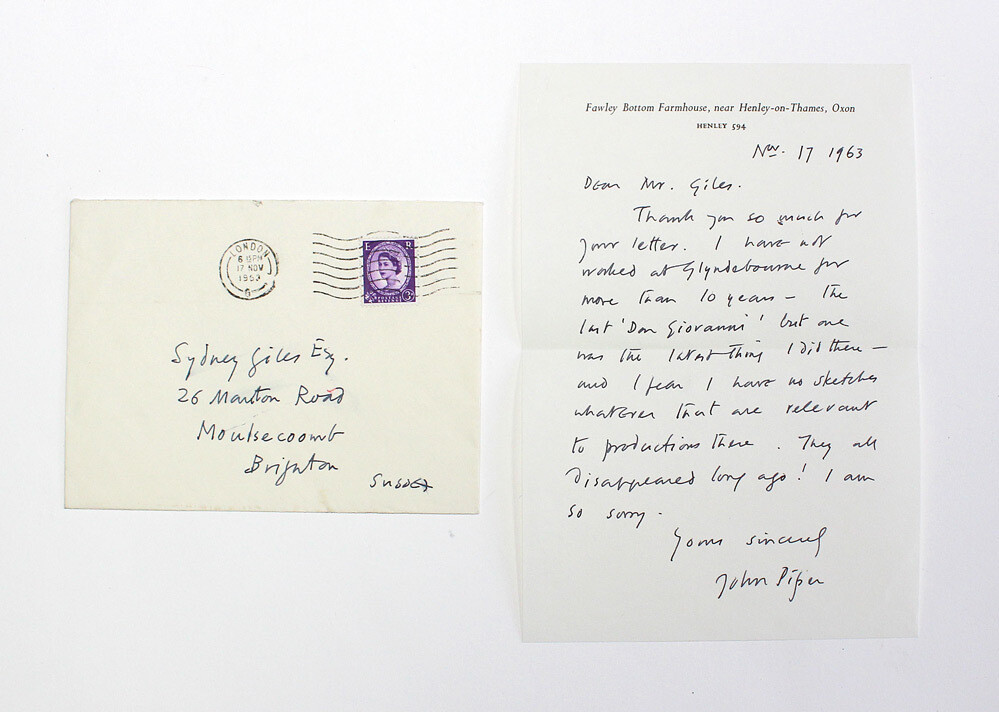 LONDON
6. 0PM
17 NOV
1963
G
E R
Sydney Giles Esq.
26 Manton Road
Moulsecoomb
Brighton
Sussex
Fawley Bottom Farmhouse, near Henley-on-Thames, Oxon
HENLEY 594
Nov. 17 1963
Dear Mr. Giles.
Thank you so much for
your letter. I have not
worked at Glyndebourne for
more than 10 years – the
last 'Don Giovanni' but one
was the latest thing I did there –
and I fear I have no sketches
whatever that are relevant
to productions there. They all
disappeared long ago! I am
so sorry.
Yours sincerely
John Piper